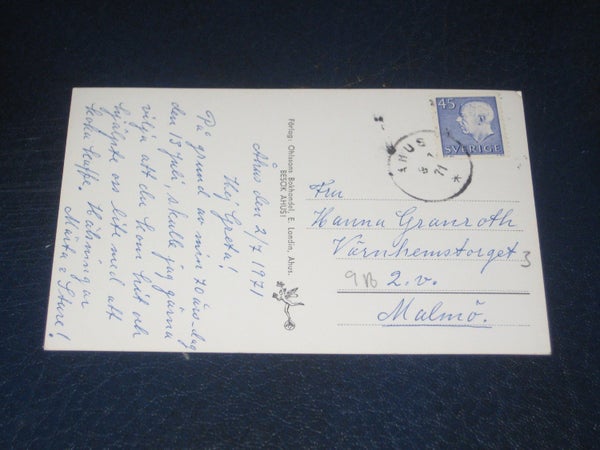 Åhus den 2/7 1971
Hej Greta!
På grund av min 70 års-dag
den 13 juli, skulle jag gärna
vilja att du kom hit och
hjälpte oss lite med att
koka kaffe. Hälsningar
Märta o Sture!
Förlag: Ohlssons Bokhandel E. Londin, Åhus.
BESÖK ÅHUS!
45
SVERIGE
ÅHUS
71
Fru
Hanna Granroth
Värnhemstorget 3
9 B 2.v.
Malmö.